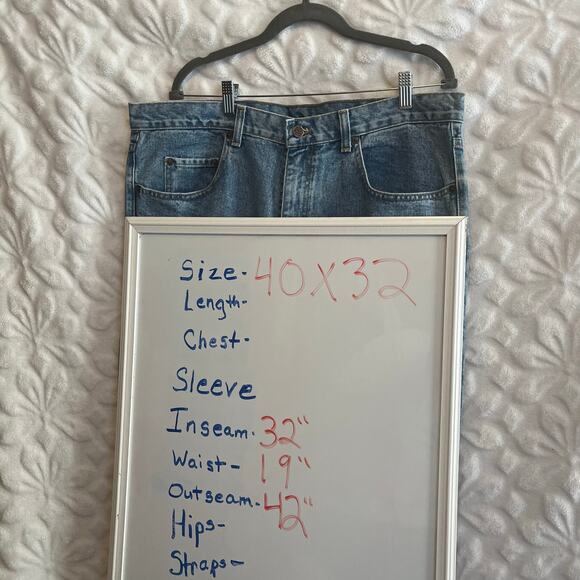 Size- 40 x 32
Length-
Chest-
Sleeve
Inseam- 32"
Waist- 19"
Outseam- 42"
Hips-
Straps-